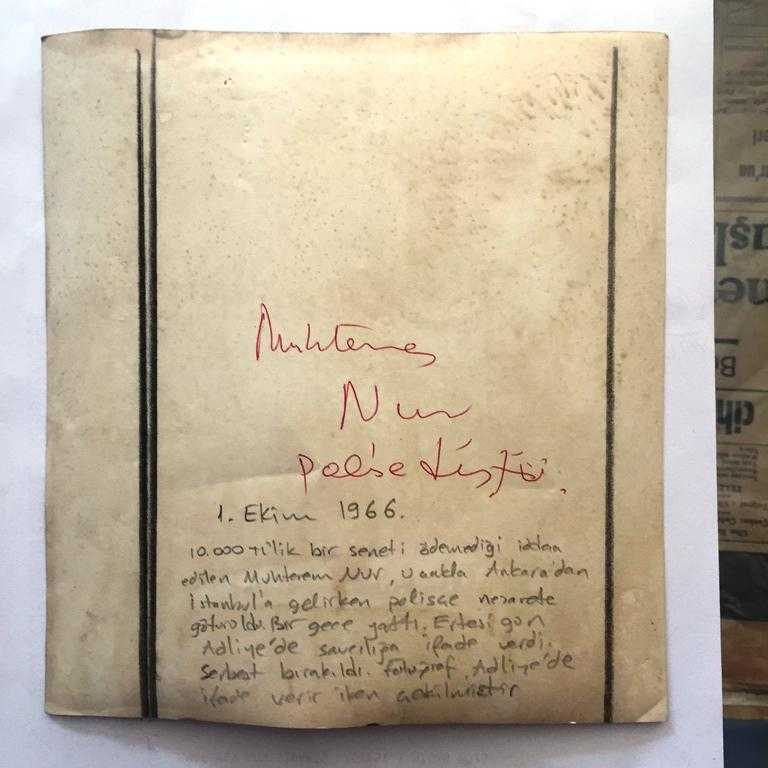 Muhterem
Nur
polise düştü.
1. Ekim 1966.
10.000 TL'lik bir seneti ödemediği iddia
edilen Muhterem Nur, uçakla Ankara'dan
İstanbul'a gelirken polisçe nezarete
götürüldü. Bir gece yattı. Ertesi gün
Adliye'de savcılığa ifade verdi.
Serbest bırakıldı. Fotoğraf, Adliye'de
ifade verir iken çekilmiştir